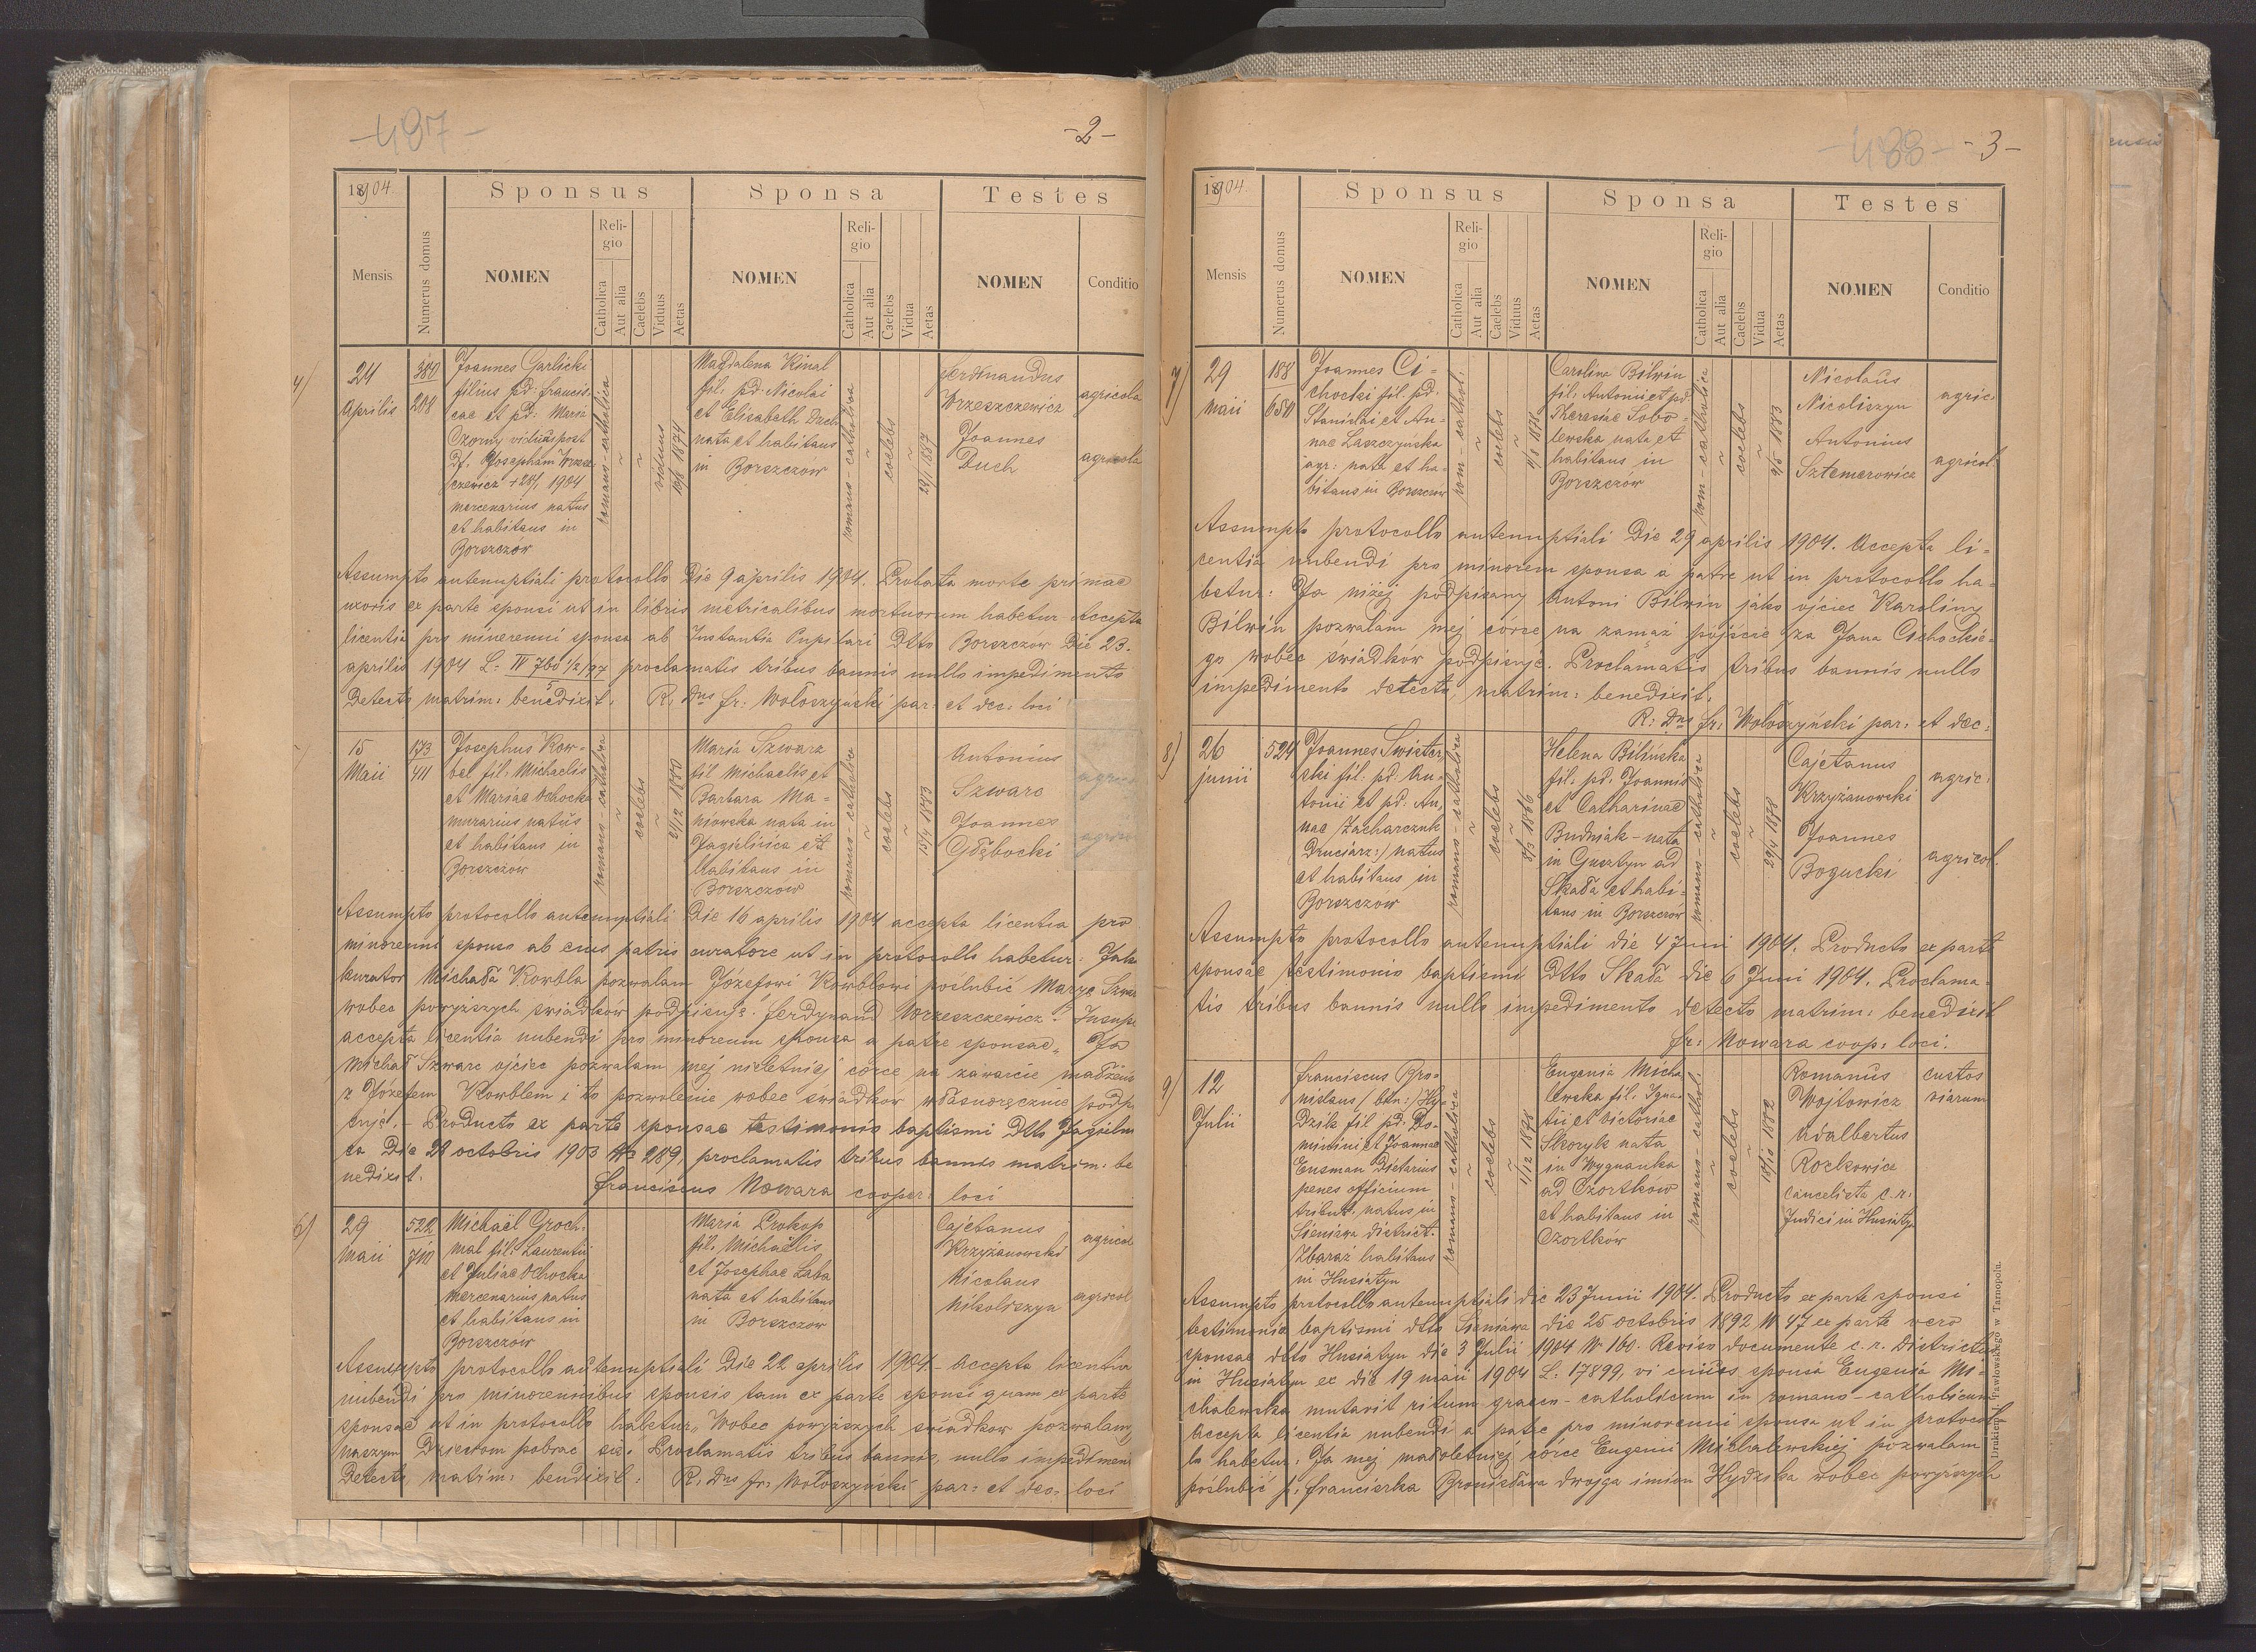 -497-
-2-
1904.
Sponsus
Sponsa
Testes
Mensis
Numerus domus
NOMEN
Religio
Catholica
Aut alia
Caelebs
Viduus
Aetas
NOMEN
Religio
Catholica
Aut alia
Caelebs
Vidua
Aetas
NOMEN
Conditio
4)
24
Aprilis
380
208
Joannes Garlicki
filius pd: Francis-
cae et pd: Maria
Czorny viduus post
Df. Josepham Wrzesz
czewicz + 28/1 1904
mercenarius natus
et habitans in
Borszczów
romano-catholica
viduus
1874
Magdalena Kinal
fil: pd: Nicolai
et Elisabeth Duch
nata et habitans
in Borszczow
romano-catholica
coelebs
Ferdinandus
Wrzeszczewicz
Joannes
Duch
agricola
agricola
Assumpto antenuptiali protocollo Die 9 aprilis 1904. Probata morte primae
uxoris ex parte sponsi ut in libris metricalibus mortuorum habetur. Accepta
licentia pro minorenni sponsa ab Instantia Pupilari Dtto Borszczow Die 23.
aprilis 1904 L: IV 760 1/2/97 proclamatis tribus bannis nullo impedimento
Detecto matrim: benedixit. R: Dns Fr: Wołoszyński par: et dec: loci
15
Maii
173
411
Josephus Kow-
bel fil: Michaelis
et Mariae Ochocka
murarius natus
et habitans in
Borszczów
romano-catholica
coelebs
2/12 1880
Maria Szwarz
fil Michaelis et
Barbara Ma-
niowska nata in
Jagielnica et
habitans in
Borszczow
romano-catholica
coelebs
15/4 1883
Antonius
Szwarc
Joannes
Głębocki
Assumpto protocollo antenuptiali Die 16 aprilis 1904 accepta licentia pro
minorenni sponso ab eius patris curatore ut in protocollo habetur: Jako
kurator Michała Kowbla pozwalam Józefowi Kowblowi poslubić Marye Szwa
wobec powyższych swiadków podpisuję. Ferdynand Wrzeszczewicz. Insupe
accepta licentia nubendi pro minorenni sponsa a patre sponsae „ Ja
Michał Szwarc ojciec pozwalam mej nieletniej córce na zawarcie małżeńs
z Józefem Kowblem i to pozwolenie wobec świadkow własnoręcznie podp
suję. - Producto ex parte sponsae testimonio baptismi Dtto Jagieln
ca Die 28 octobris 1903 No 289, proclamatis tribus bannis matrim: be
nedixit.
Franciscus Nowara cooper: loci
6)
29
Maii
522
710
Michaël Groch-
mal fil: Laurentii
et Juliae Ochocka
mercenarius natus
et habitans in
Borszczów
Maria Prokop
fil. Michaëlis
et Josephae Łaba
nata et habitans
in Borszczow
Cajetanus
Krzyżanowski
Nicolaus
Nikoliszyn
agricol
agricol
Assumpto protocollo autenuptiali Die 22 aprilis 1904 - Accepta licentia
nubendi pro minorennibus sponsis tam ex parte sponsi quam ex parte
sponsae ut in protocollo habetur „Wobec powyższych swiadkow pozwalamy
naszym Dzieciom pobrac sie. Proclamatis tribus bannis, nullo impedimen
Detecto matrim: bendixit: R: Dns Fr: Wołoszyński par: et dec: loci
-488-
-3-
1904.
Sponsus
Sponsa
Testes
Mensis
Numerus domus
NOMEN
Religio
Catholica
Aut alia
Caelebs
Viduus
Aetas
NOMEN
Religio
Catholica
Aut alia
Caelebs
Vidua
Aetas
NOMEN
Conditio
7)
29
Maii
188
650
Joannes Ci-
chocki fil. pd.
Stanislai et An-
nae Laszczyńska
agr: nata et ha-
bitans in Borszczow
rom-cathol.
coelebs
Carolina Bilwin
fil: Antonii et pd
Theresiae Sobo-
lewska nata et
habitans in
Borszczow
rom-catholica
coelebs
9/5 1883
Nicolaus
Nicoliszyn
Antonius
Sztemerowicz
agric:
agricol.
Assumpto protocollo autenuptiali Die 29 aprilis 1904. Accepta li-
centia nubendi pro minorem sponsa a patre ut in protocollo ha-
betur: Ja niżej podpisany Antoni Bilwin jako ojciec Karoliny
Bilwin pozwalam mej córce na zamąż pójście za Jana Cichockie-
go wobec świadków podpisuję. Proclamatis tribus bannis nullo
impedimento detecto, matrim: benedixit.
R: Dns Fr: Wołoszyński par: et dec:
8)
26
junii
524
Joannes Swister
ski fil: pd. An-
tonii et pd: An-
nae Zacharczuk
Druciarz:/ natus
et habitans in
Borszczow
romano-catholica
coelebs
8/3 1866
Helena Bilińska
fil: pd. Joannis
et Catharinae
Budniak - nata
in Gusztyn ad
Skała et habi-
tans in Borszczów
romano-catholica
coelebs
29/4 1878
Cajetanus
Krzyżanowski
Joannes
Bogucki
agric:
agricol.
Assumpto protocollo antenuptiali die 4 Juni 1904. Producto ex parte
sponsae testimonio baptismi Dtto Skała die 6 Juni 1904. Proclama-
tis tribus bannis nullo impedimento detecto matrim: benedixit
Fr: Nowara coop: loci.
9)
12
Julii
Franciscus Bro-
nislaus / btn:/ Hy-
Dzik fil pd: Do-
minini et Joannae
Ensman Dietarius
penes officium
tribut: natus in
Sieniawa district.
Zbaraż habitans
in Husiatyn
romano-catholica
coelebs
1/12 1878
Eugenia Micha
lewska fil. Igna-
tii et Victoriae
Skoryk nata
in Wygnanka
ad Czortków
et habitans in
Czortków
romano-cathol.
coelebs
10/10 1882
Romanus
Wojtowicz
Adalbertus
Rockowice
cancelista c.r.
Judici in Husiatyn
custos
viarum
Assumpto protocollo antenuptiali die 23 Junii 1904. Producto ex parte sponsi
testimonio baptismi dtto Sieniawa die 25 octobris 1892 N 47 ex parte vero
sponsae dtto Husiatyn die 3 Julii 1904 N 160. Reviso documente c.r. Districtus
in Husiatyn ex die 19 maii 1904 L: 17899, vi cuius sponsa Eugenia Mi-
chalewska mutavit ritum graeco-catholicum in romano-catholicum
Accepta licentia nubendi a patre pro minorenni sponsa ut in protocol-
lo habetur: Ja mej małoletniej córce Eugenii Michalewskiej pozwalam
poślubić p. Franciszka Bronisława dwojga imion Hydzika wobec powyższych
Drukiem J. Pawłowskiego w Tarnopolu.